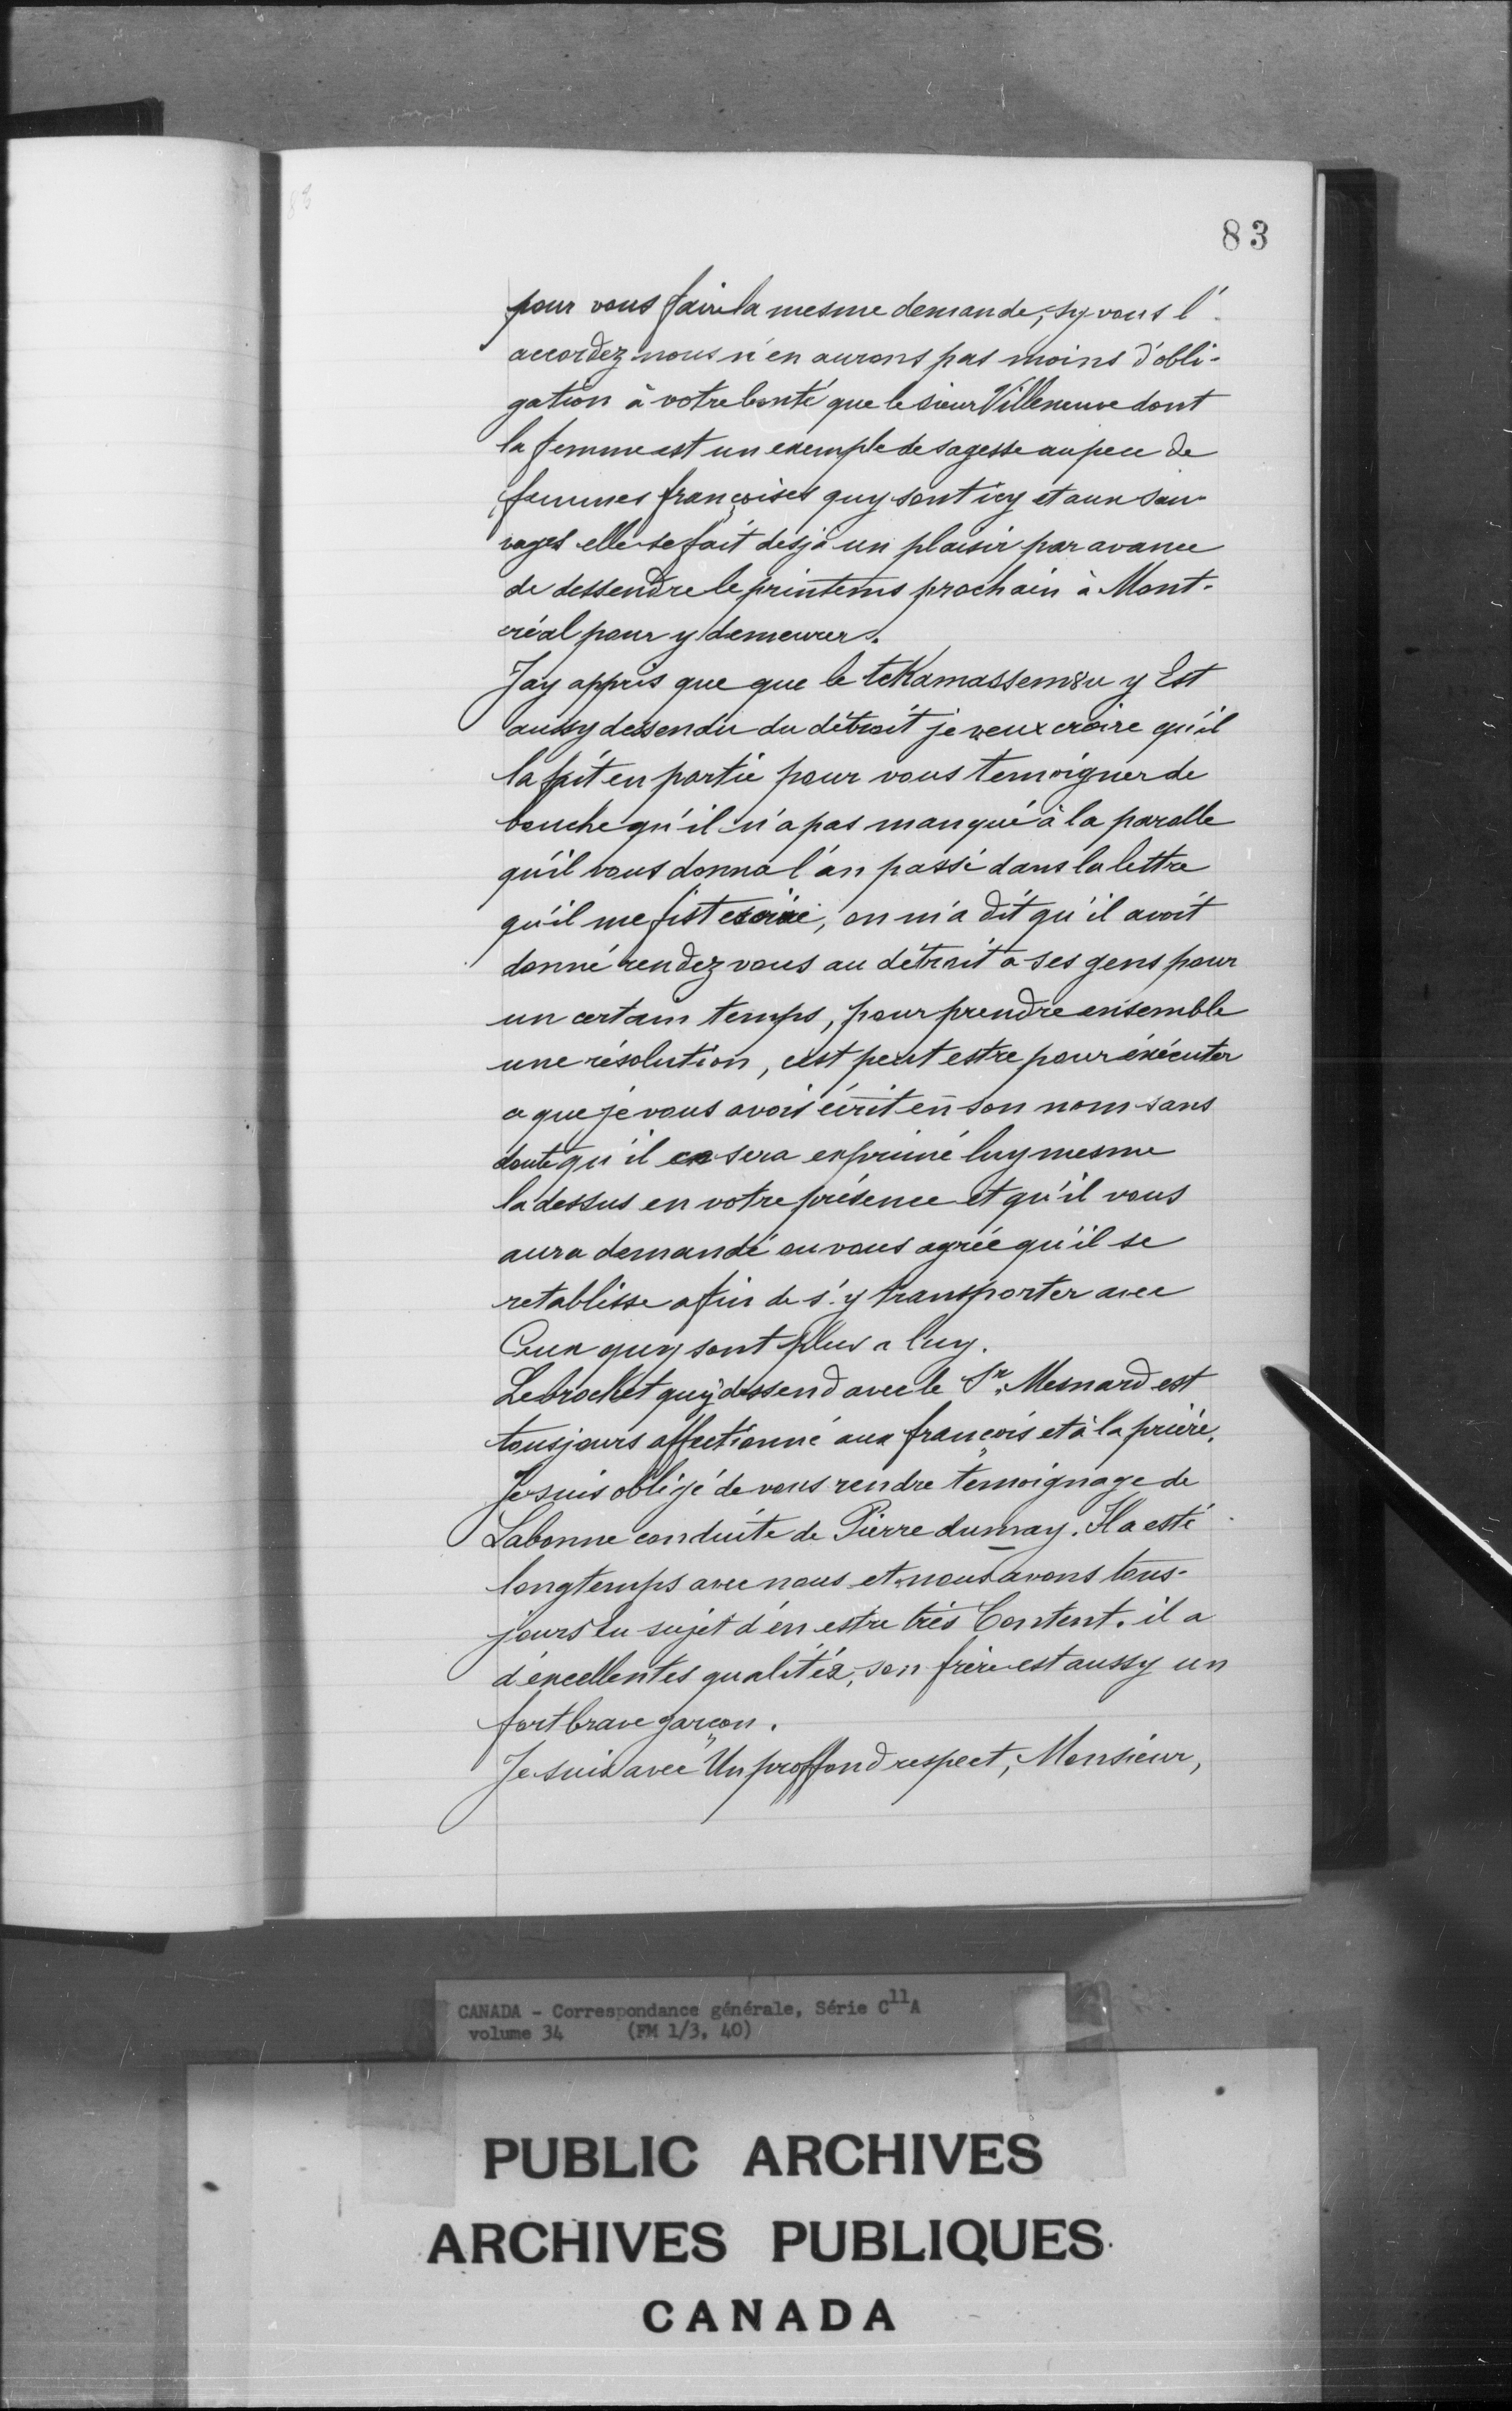 83
pour vous faire la mesme demande, sy vous l'
accordez nous n'en aurons pas moins d'obli-
gation à votre bonté que le sieur Villeneuve dont
la femme est un exemple de sagesse au peu de
femmes françoises quy sont icy et aux sau-
vages elle se fait desjà un plaisir par avance
de dessendre le printems prochain à Mont-
réal pour y demeurer.
J'ay appris que que le teKamassem8u y Est
aussy dessendu du détroit je veux croire qu'il
la fait en partie pour vous temoigner de
bouche qu'il n'a pas manqué à la parolle
qu'il vous donna l'an passé dans la lettre
qu'il me fist escrire, on m'a dit qu'il avoit
donné rendez vous au détroit a ses gens pour
un certain temps, pour prendre ensemble
une résolution, c'est peut estre pour éxécuter
ce que je vous avois écrit en son nom sans
doute qu'il se sera exprimé luy mesme
la dessus en votre présence et qu'il vous
aura demandé ou vous agrée qu'il se
retablisse afin de s'y transporter avec
Ceux quy sont plus a luy.
Le brochet quy dessend avec le Sr. Mesnard est
tousjours affectionné aux françois et à la prière.
Je suis obligé de vous rendre témoignage de
La bonne conduite de Pierre dumay. Il a esté
longtemps avec nous et nous avons tous-
jours eu sujet d'en estre très Content. il a
d'excellentes qualitéz, son frère est aussy un
fort brave garçon.
Je suis avec Un proffond respect, Monsieur,
CANADA - Correspondance générale, Série C11A
volume 34 (FM 1/3, 40)
PUBLIC ARCHIVES
ARCHIVES PUBLIQUES
CANADA